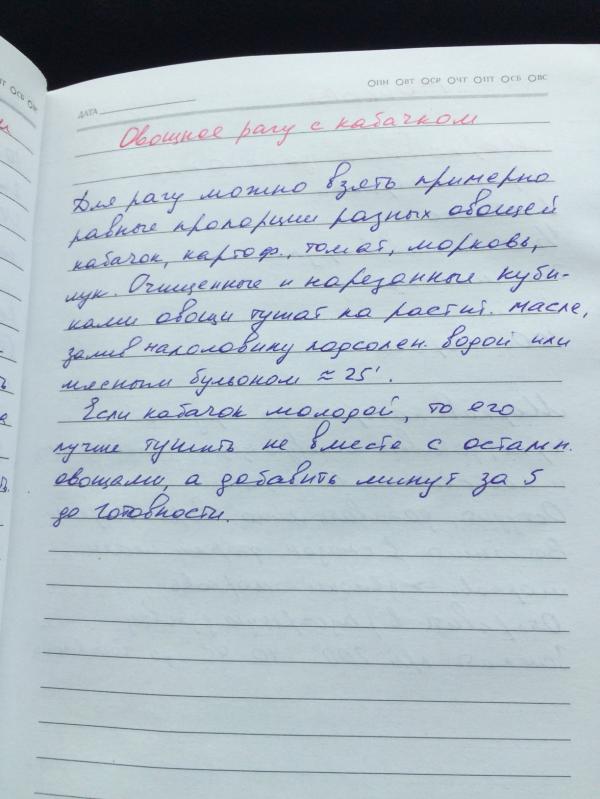 ПН ВТ СР ЧТ ПТ СБ ВС
ДАТА
Овощное рагу с кабачком
Для рагу можно взять примерно
равные пропорции разных овощей
кабачок, картоф., томат, морковь,
лук. Очищенные и нарезанные куби-
ками овощи тушат на растит. масле,
залив наполовину подсолен. водой или
мясным бульоном ≈ 25'.
Если кабачок молодой, то его
лучше тушить не вместе с остальн.
овощами, а добавить минут за 5
до готовности.